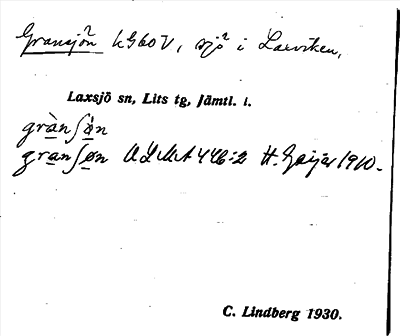 Gransjön LG60V, sjö i Laxviken,
Laxsjö sn, Lits tg, Jämtl. l.
gràn∫ø̀n
gran∫øn ULMA 446:2 H. Geijer 1910.
C. Lindberg 1930.